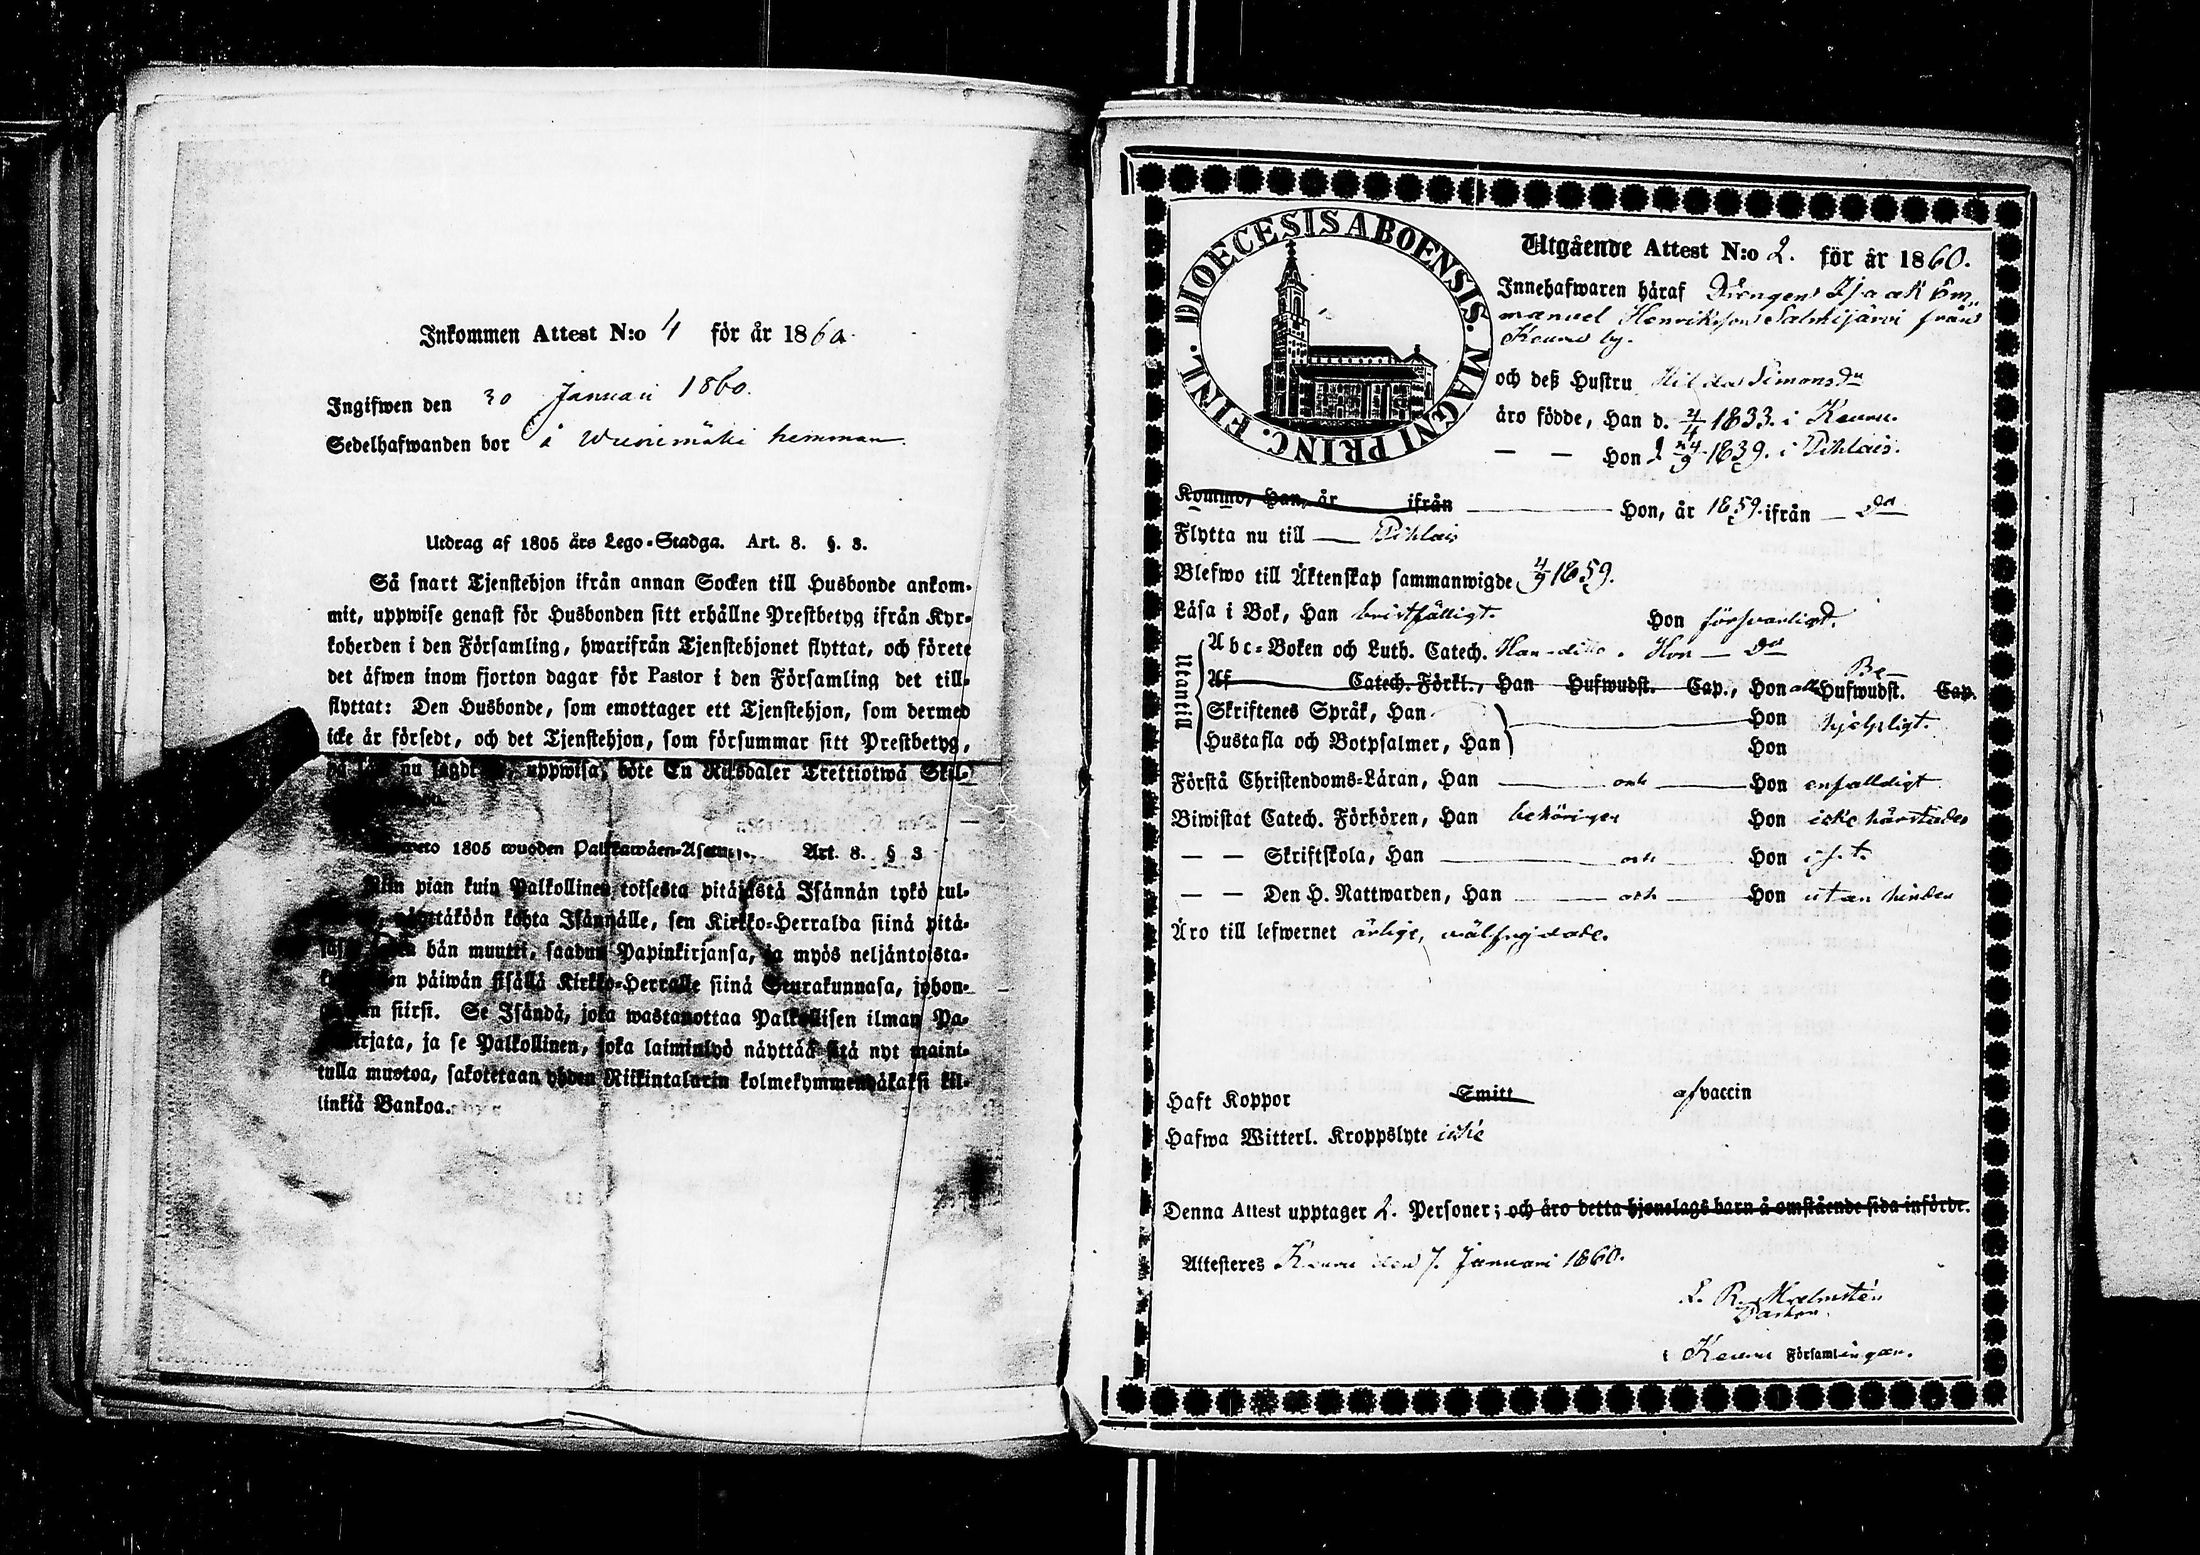 Inkommen Attest N:o 4 för år 1860.
Ingifwen den 30 Januari 1860.
Sedelhafwanden bor å Wuorimäki hemman
Utdrag af 1805 års Lego-Stadga. Art. 8. §. 3.
Så snart Tjenstehjon ifrån annan Socken till Husbonde ankom-
mit, uppwise genast för Husbonden sitt erhållne Prestbetyg ifrån Kyr-
koherden i den Församling, hwarifrån Tjenstehjonet flyttat, och förete
det äfwen inom fjorton dagar för Pastor i den Församling det till-
flyttat: Den Husbonde, som emottager ett Tjenstehjon, som dermed
icke är försedt, och det Tjenstehjon, som försummar sitt Prestbetyg,
nu sagdt uppwisa, böte En Riksdaler Trettiotwå Skil-
1805 wuoden Palkkawäen-Asetuxesta. Art. 8. § 3
Niin pian kuin Palkollinen toisesta pitäjästä Isännän tykö tul-
näyttäköön kohta Isännälle, sen Kirkko-Herralda siinä pitä-
hän muutti, saadun Papinkirjansa, ja myös neljäntoista-
päiwän sisällä Kirkko-Herralle siinä Seurakunnasa, johon-
siirsi. Se Isändä, joka wastanottaa Palkollisen ilman Pa-
pinkirjata, ja se Palkollinen, joka laiminlyö näyttää sitä nyt maini-
tulla muotoa, sakotetaan yhden Riikintalarin kolmekymmendäkaksi kil-
linkiä Bankoa.
DIOECESIS ABOENSIS. MAGNI PRINC. FINL.
Utgående Attest N:o 2. för år 1860.
Innehafwaren häraf Drängen Isaak Em„
manuel Henriksson Salmijärvi från
Keuru by.
och deß Hustru Hilda Simonsdr
äro födde, Han d. 4/4 1833. i Keuru.
— — Hon d. 24/9 1839. i Pihlais.
Kommo, Han, år ifrån — Hon, år 1859. ifrån — Do
Flytta nu till — Pihlais
Blefwo till Äktenskap sammanwigde 4/9 1859.
Läsa i Bok, Han bristfälligt. Hon förswarligt.
Utantill
Abc-Boken och Luth. Catech. Han - ditto. Hon — Do
Af Catech. Förkl., Han Hufwudst. Cap., Hon Hufwudst. Cap.
Skriftenes Språk, Han — Hon hjelpligt.
Hustafla och Botpsalmer, Han Hon
Förstå Christendoms-Läran, Han — och — Hon enfalldigt
Biwistat Catech. Förhören, Han behörigen Hon icke härstädes
— — Skriftskola, Han — och — Hon
— — Den H. Nattwarden, Han — och — Hon utan hinder
Äro till lefwernet ärlige, wälfrejdade.
Haft Koppor Smitt af vaccin
Hafwa Witterl. Kroppslyte icke
Denna Attest upptager 2. Personer; och äro detta hjonelags barn å omstående sida införde.
Attesteres Keuru den 7. Januari 1860.
Pastor.
i Keuru Församlingen.